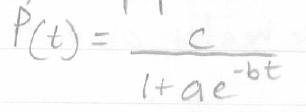 P(t) = c / (1 + ae^(-bt))